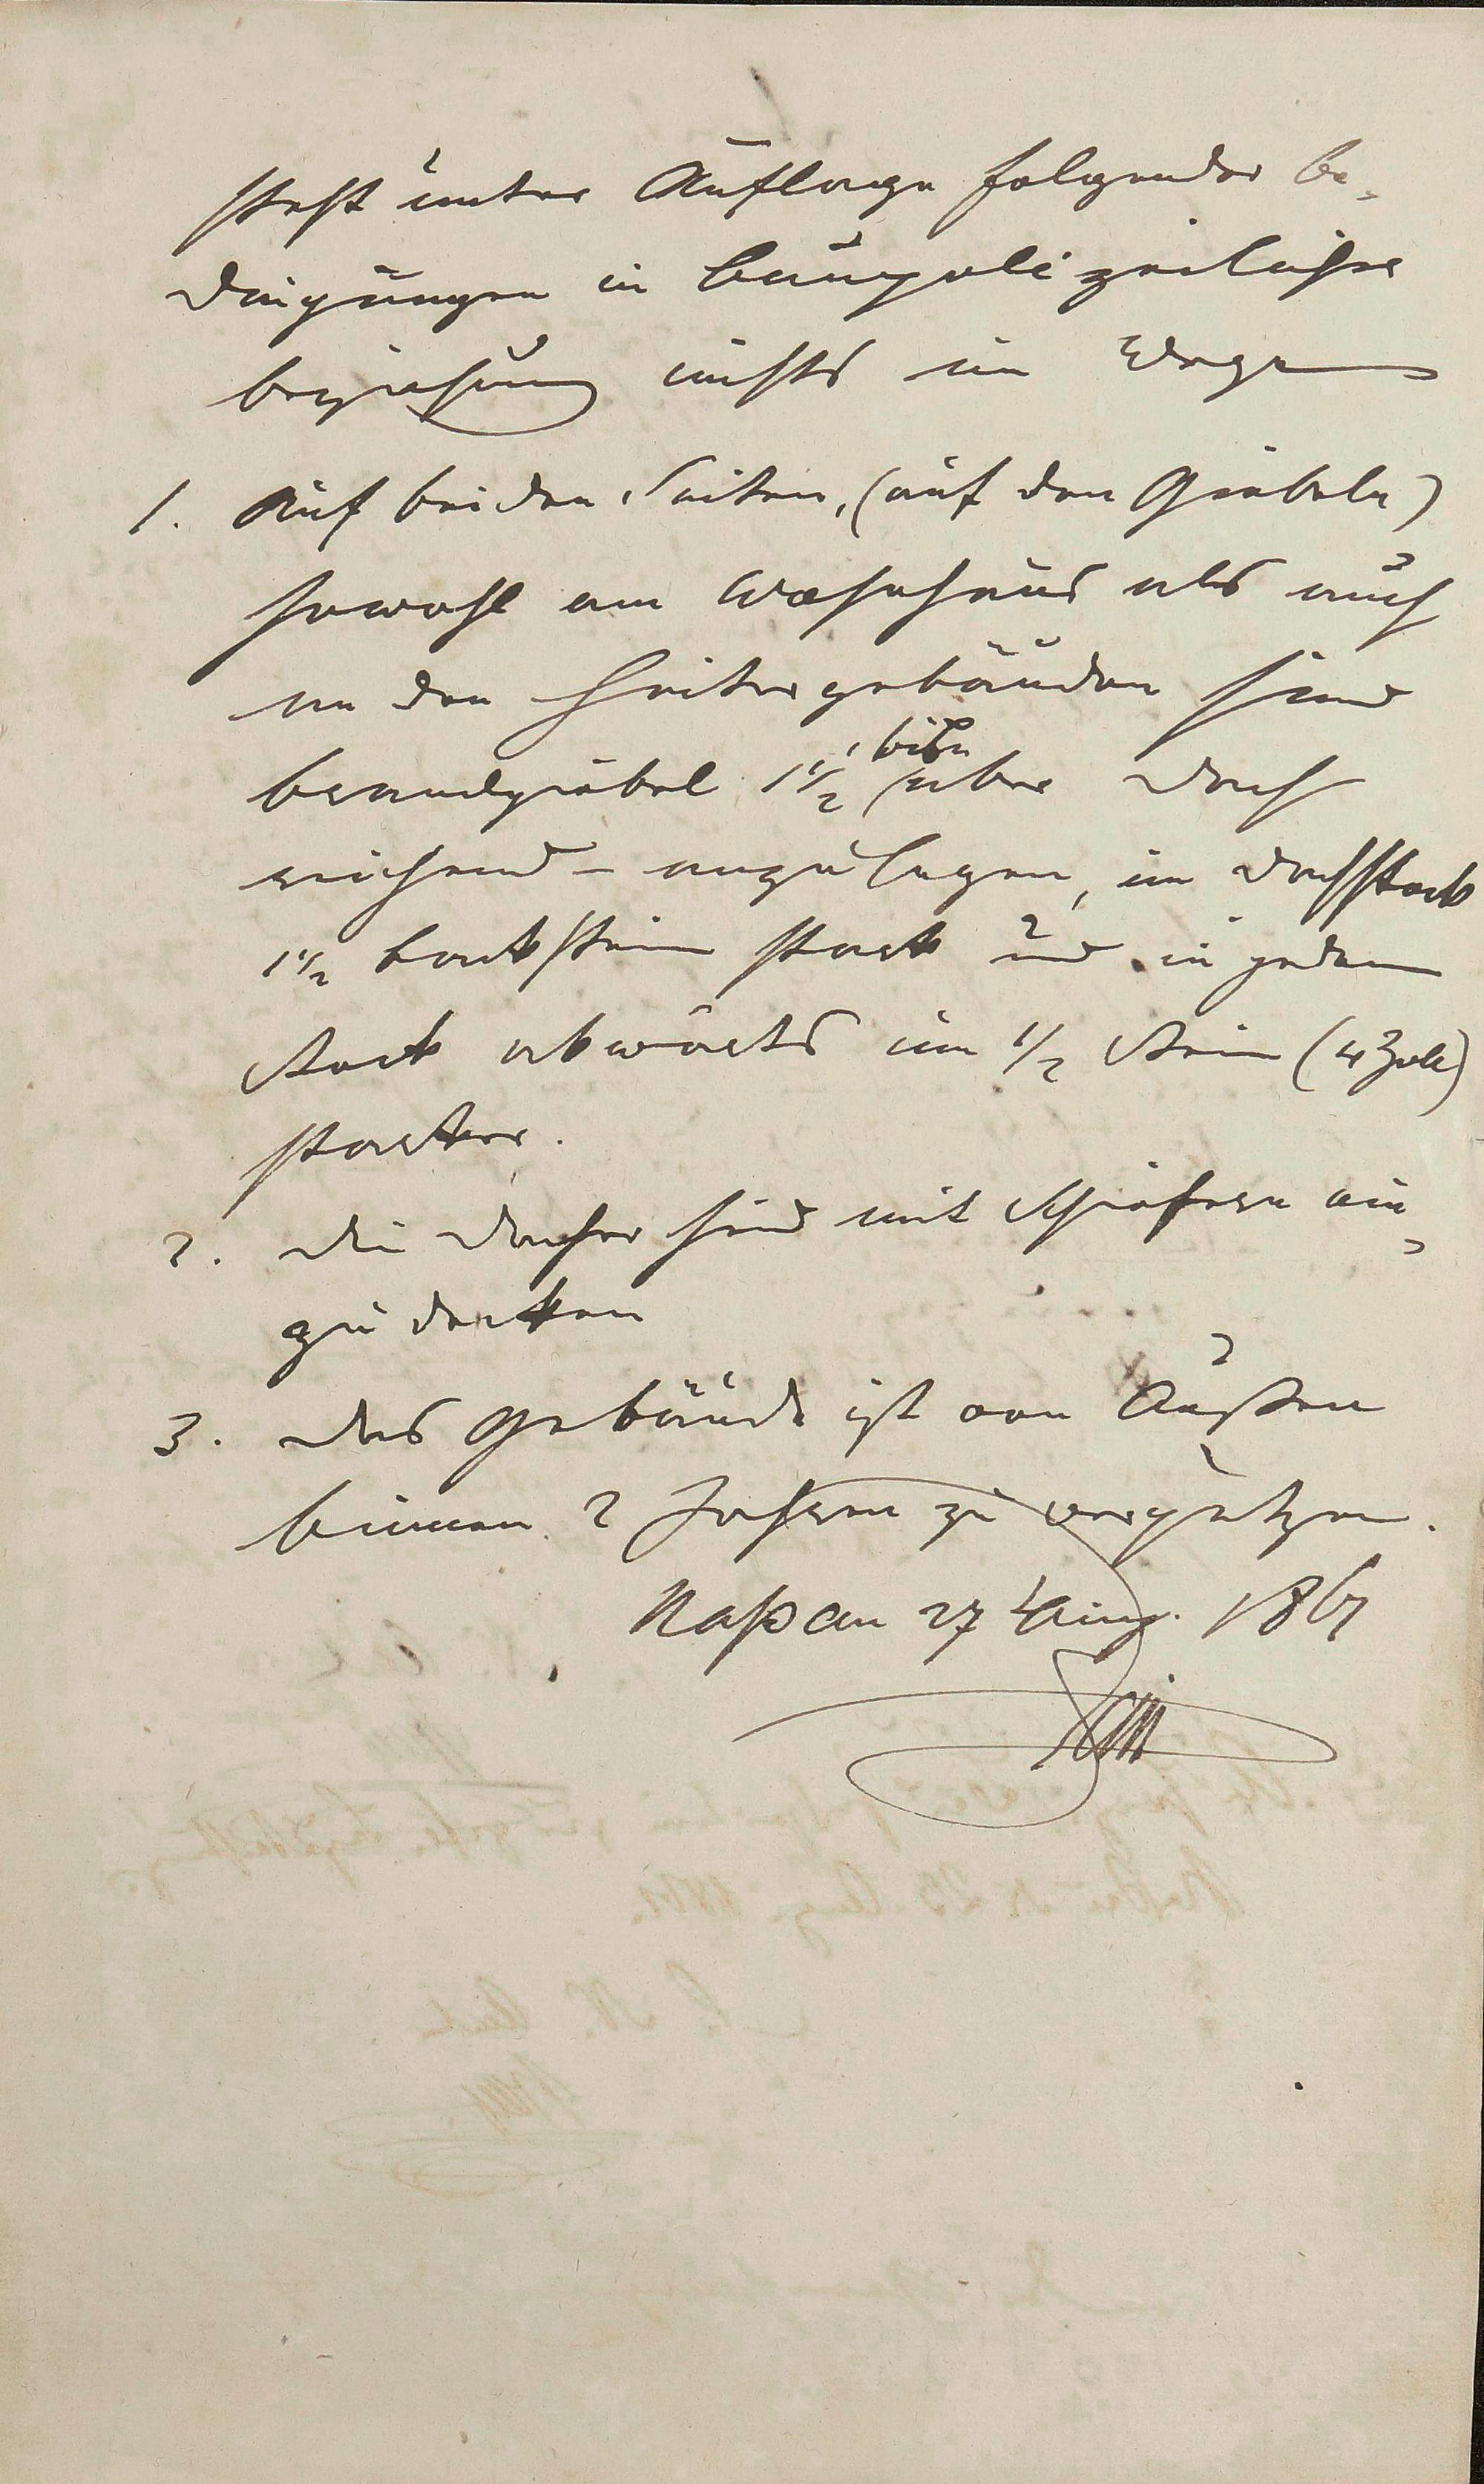 steht unter Auflage folgender Be-
dingungen in baupolizeilicher
beziehung nichts im Wege
1. Auf beiden Seiten, (auf den Giebeln)
sowohl am Wohnhaus als auch
an den Seitengebäuden sind
brandgiebel 1 1/2' über Dach
reichend - anzulegen, im Dachstock
1 1/2 backstein stark und in jedem
Stock abwärts um 1/2 Stein (4 Zoll)
starker.
2. die Dacher sind mit Schiefern ein-
zudecken
3. das Gebäude ist von Außen
binnen 2 Jahren zu verputzen.
Naßau 27 Aug. 1861